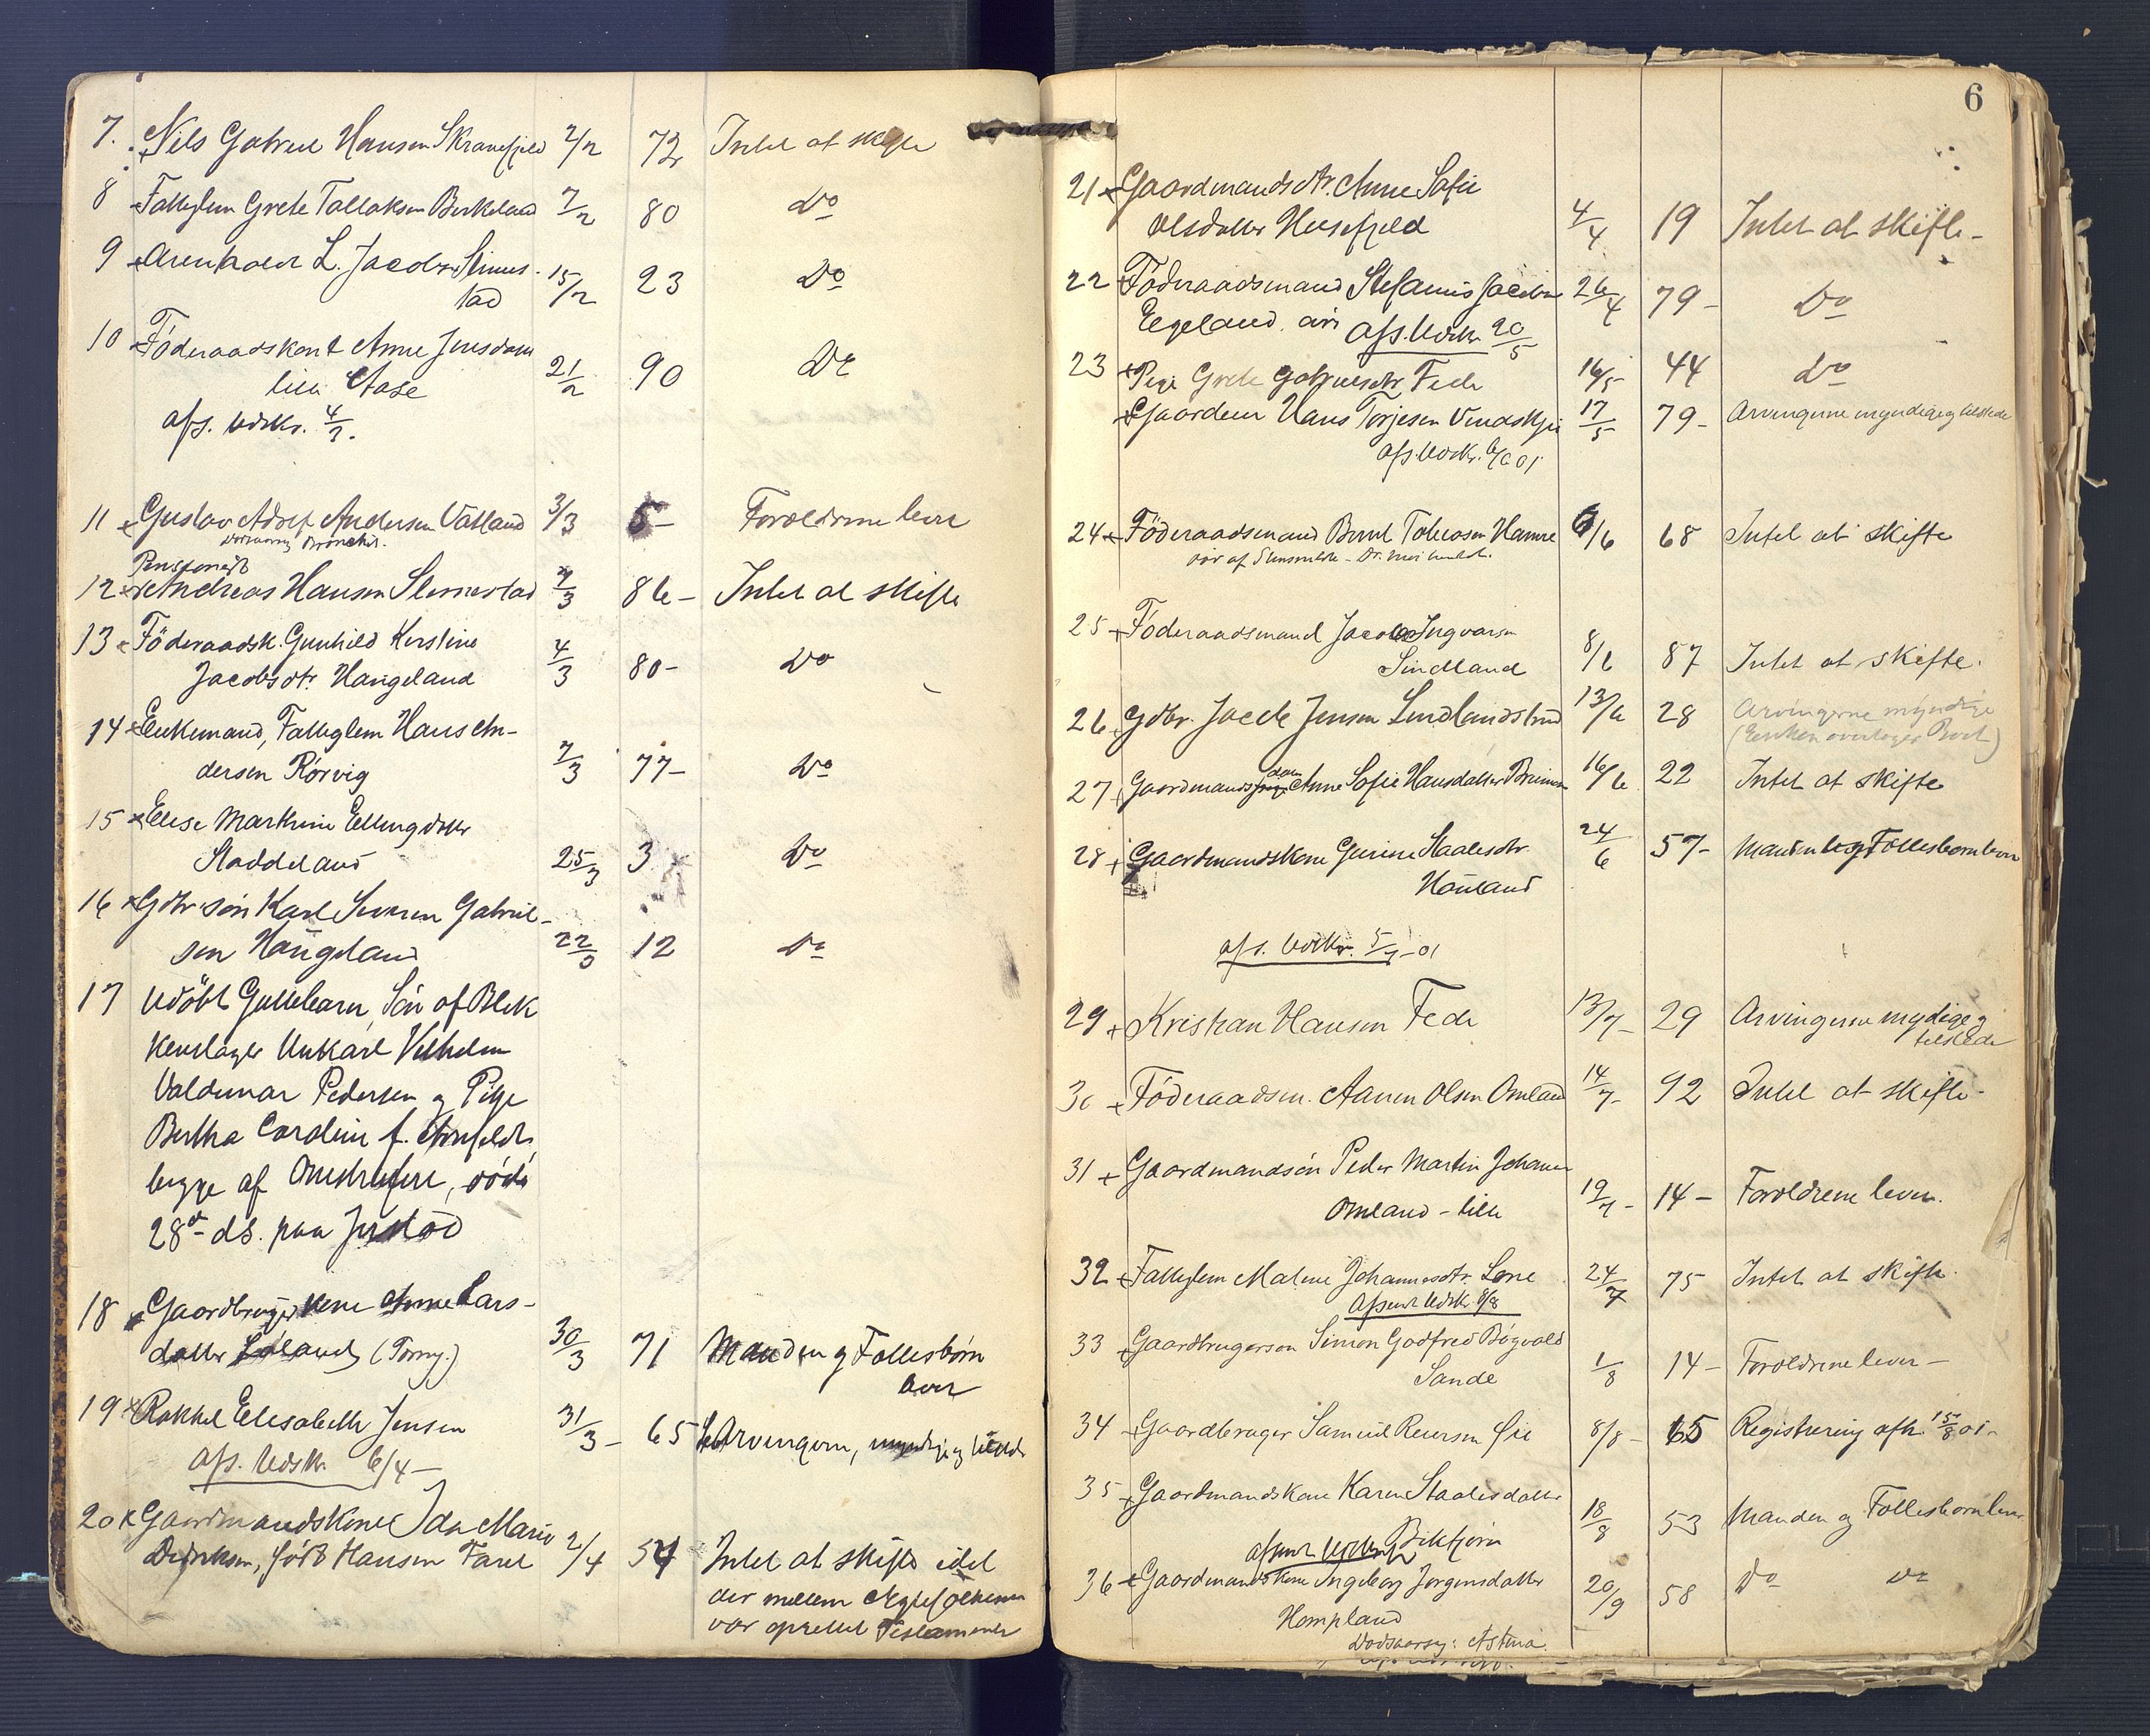 7. Nils Gabriel Hansen Skranefjeld 2/2 72 Intet at skifte
8 Fattiglem Grete Tallaksen Birkeland 7/2 80 Do
9 L. Jacobsen Slimes-
tad 15/2 23 Do
10 Föderaadskont Anne Jensdatter
lille Aase 21/2 90 Do
afs. Udskr. 4/3.
11 Gustav Adolf Andersen Vatland 3/3 5- Forældrene lever
Dødsaarsag Bronchit.
Pensionist
12 Andreas Hansen Slimestad 4/3 86- Intet at skifte
13 Föderaadsk. Gunhild Kirstine
Jacobsdtr. Haugeland 4/3 80- Do
14 Enkemand, Fattiglem Hans An-
dersen Rörvig 7/3 77- Do
15 Elise Martine Ellingsdatter
Staddeland 25/3 3 Do
16 Gdbr. sön Karl Severin Gabriel-
sen Haugeland 22/3 12 Do
17 Udöbt Guttebarn, Sön af Blik
kenslager Unkarl Vilhelm
Valdemar Pedersen og Pige
Bertha Caroline f.
begge af
28de ds. paa
18 Gaardbruger kone Anne Lars-
datter Löland (Tonny.) 30/3 71 Manden og Fællesbörn
lever
19 Rakkel Elisabeth Jensen 31/3- 65 Arvingerne, myndige og tilstede
afs. Udskr. 6/4-
20 Gaardmandskone Ida Marie
Didriksen, född Hansen Farel 2/4 54 Intet at skifte idet
der mellem Ægtefolkene
var oprettet Testamente
6
21 Gaardmandsdtr. Anne Sofie
Olsdatter Heesefjeld 4/4 19 Intet at skifte-
22 Föderaadsmand Stefanus Jacobsen 26/4 79- Do
Eegeland. afs. Udskr. 20/5
23 Pige Grete Gabrielsdtr. Feda 16/5 44 Do
Gaardm Hans Torjesen Vindskjei 17/5 79- Arvingerne myndige og tilstede
afs. Udskr. 6/6 01
24 Föderaadsmand Bernt Tobiasen Hamre 6/6 68 Intet at skifte
25 Föderaadsmand Jacob Ingvarsen
Sindland 8/6 87 Intet at skifte.
26 Gdbr. Jacob Jensen Lindlandstrand 13/6 28 Arvingerne myndige
(Enken overtager Boet)
27 Gaardmandsdatter Anne Sofie Hansdatter 16/6 22 Intet at skifte
28 Gaardmandskone Gurine Staalesdtr.
Höiland 24/6 57- Manden og Fællesbörn lever
afs. Udskr. 5/7-01
29 Kristian Hansen Feda 13/7- 29 Arvingerne myndige og
tilstede
30 Föderaadsm. Aanen Olsen Omland 14/7- 92 Intet at skifte-
31 Gaardmandsön Peder Martin Johansen
Omland - lille 19/7- 14- Forældrene lever.
32 Fattiglem Maline Johannesdtr. Lone 24/7 75 Intet at skifte.
Afsendt Udskr. 8/8
33 Gaardbrugersön Simon Godfred Bögvald
Sande 1/8 14- Forældrene lever-
34 Gaardbruger Samuel Reiersen Öie 8/8- 65 Registrering afh. 15/8 01-
35 Gaardmandskone Karen Staalesdatter
Birkjörn 18/8 53 Manden og Fællesbörn lever
afsendt Udskr.
36 Gaardmandskone Ingeborg Jörgensdatter
Hompland 20/9 58 Do Do
Dödsaarsag: Astma.